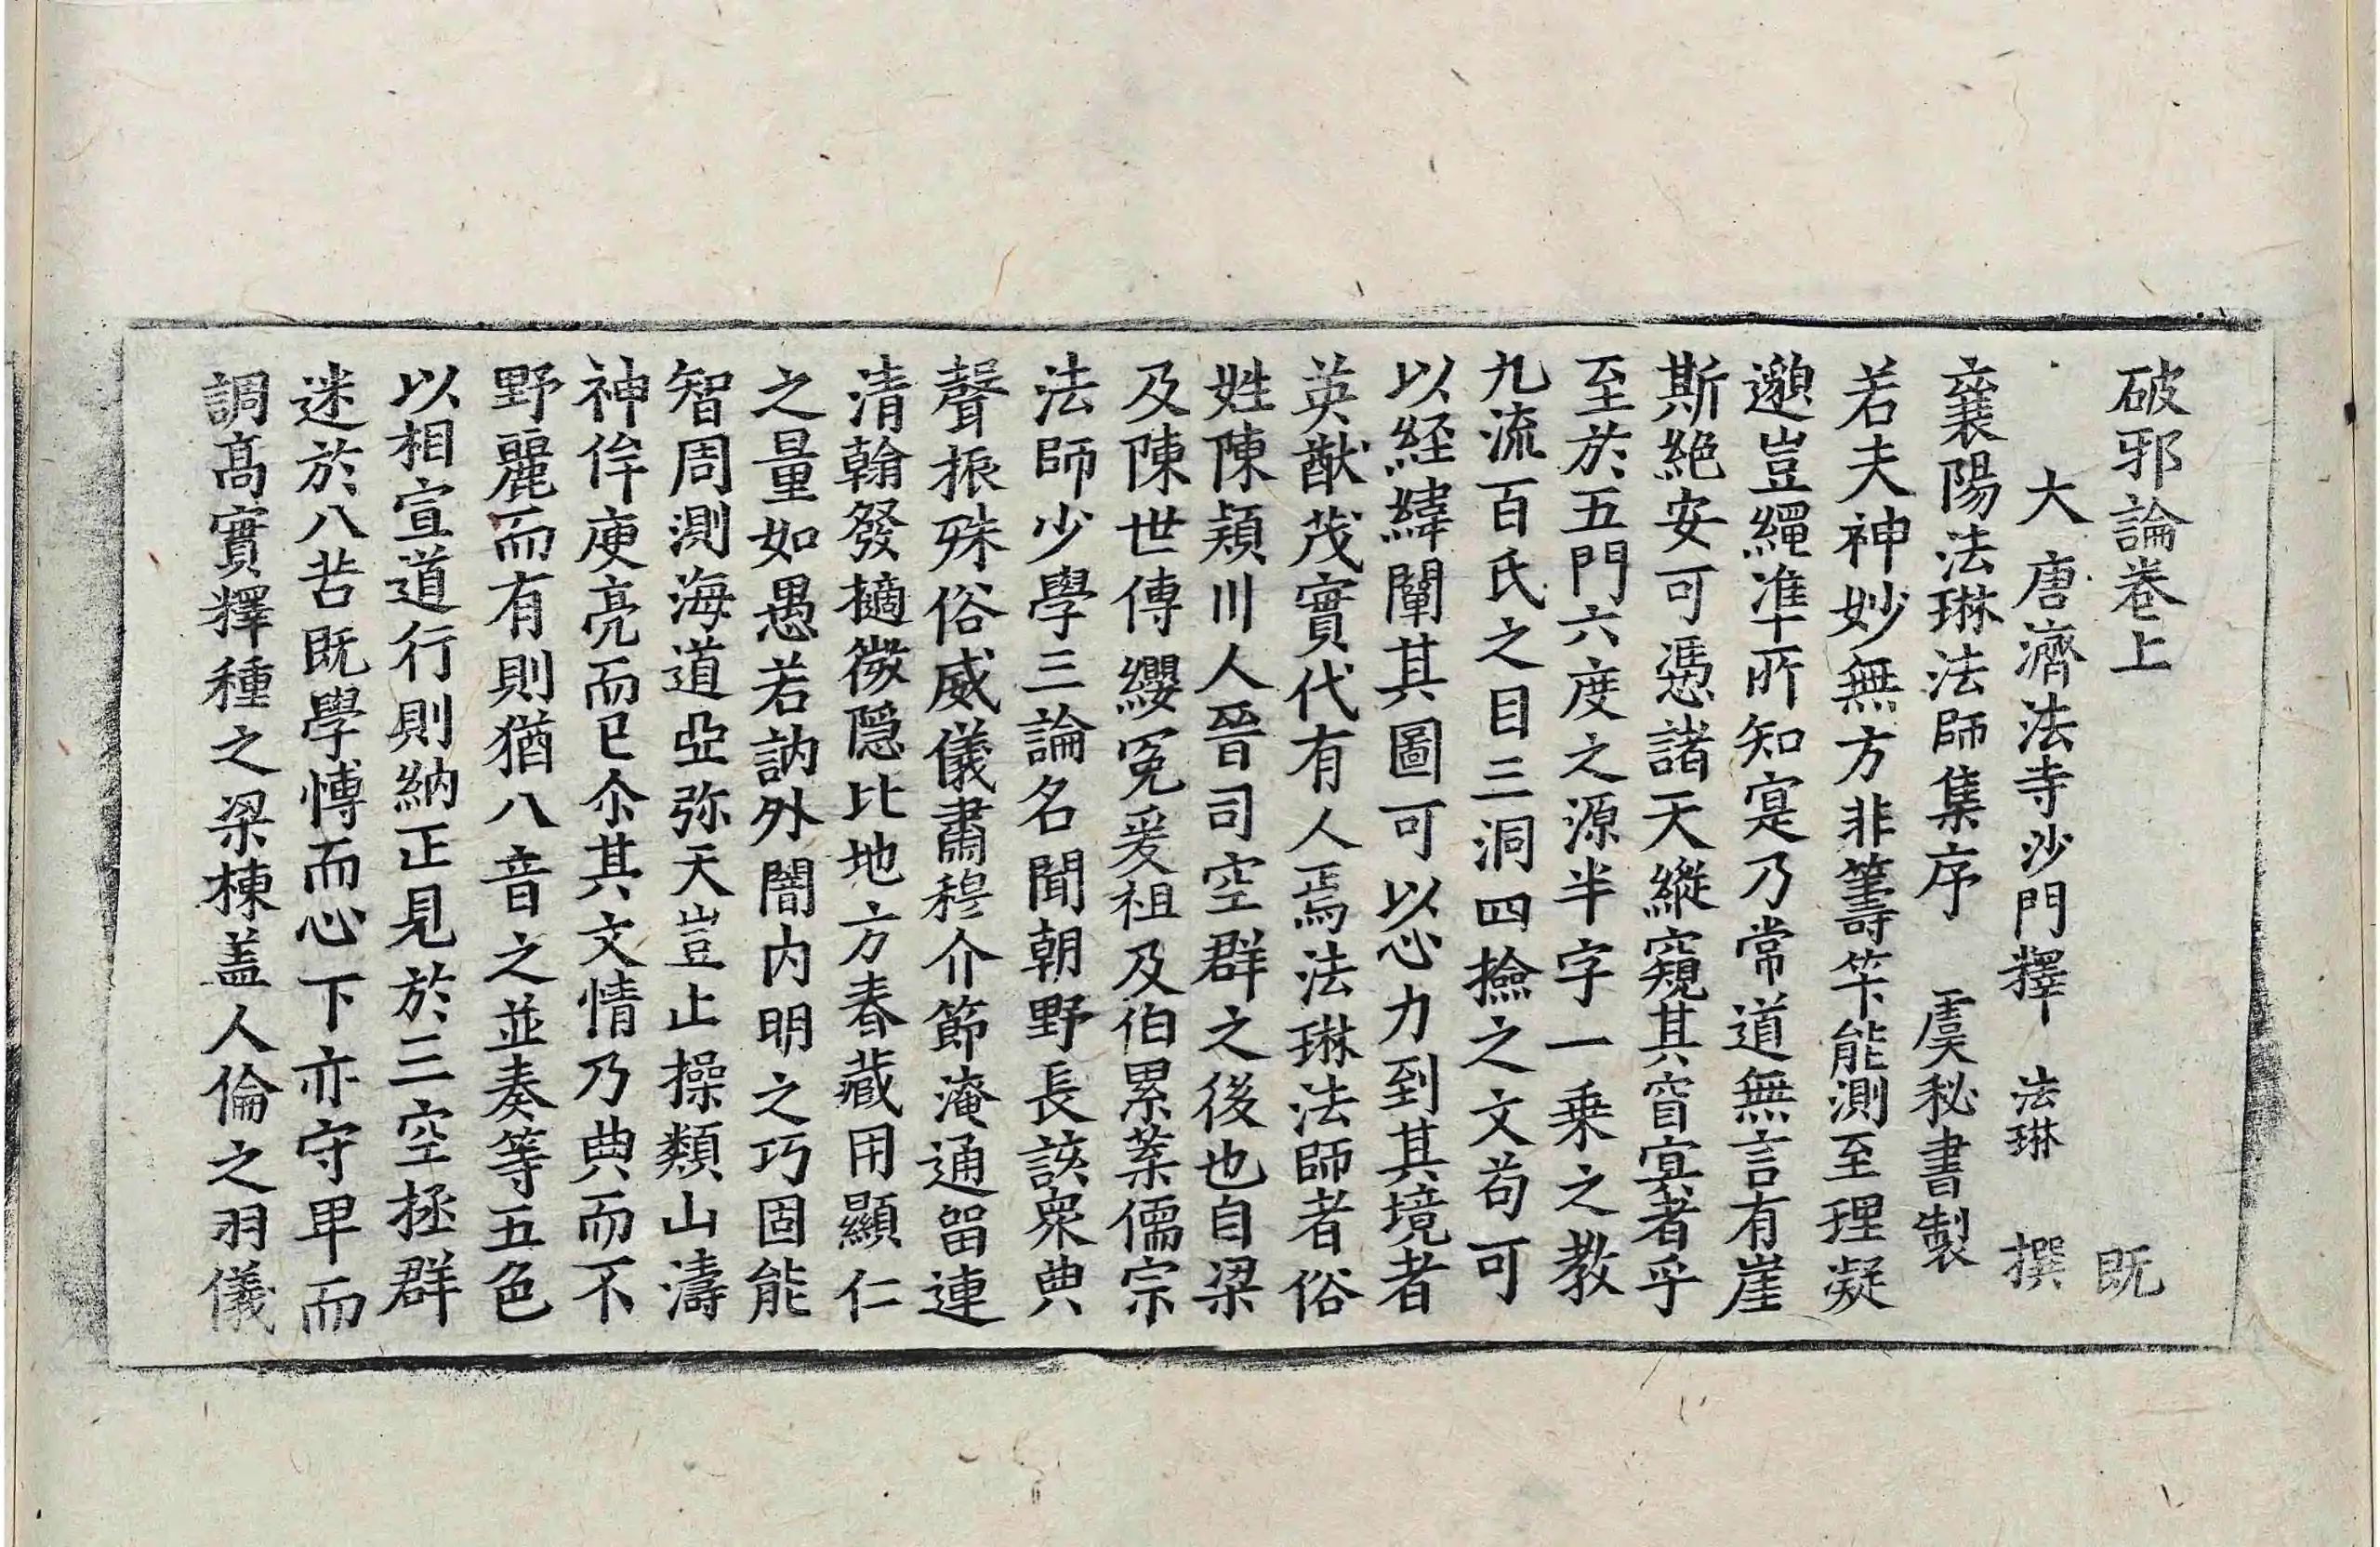 破邪論卷上　既
大唐濟法寺沙門釋　法琳　撰
襄陽法琳法師集序　虞秘書製
若夫神妙無方非籌筭能測至理凝
邈豈繩准所知寔乃常道無言有崖
斯絶安可憑諸天縱窺其窅寞者乎
至於五門六度之源半字一乗之教
九流百氏之目三洞四撿之文苟可
以経緯闡其圖可以心力到其境者
英猷茂實代有人焉法琳法師者俗
姓陳頴川人晉司空群之後也自梁
及陳世傳纓冕爰祖及伯累葉儒宗
法師少學三論名聞朝野長該衆典
聲振殊俗威儀肅穆介節淹通留連
清翰發擿微隱比地方春藏用顯仁
之量如愚若訥外闇内明之巧固能
智周測海道亞弥天豈止操類山濤
神侔庾亮而已尒其文情乃典而不
野麗而有則猶八音之並奏等五色
以相宣道行則納正見於三空拯群
迷於八苦既學慱而心下亦守卑而
調髙實釋種之梁棟盖人倫之羽儀